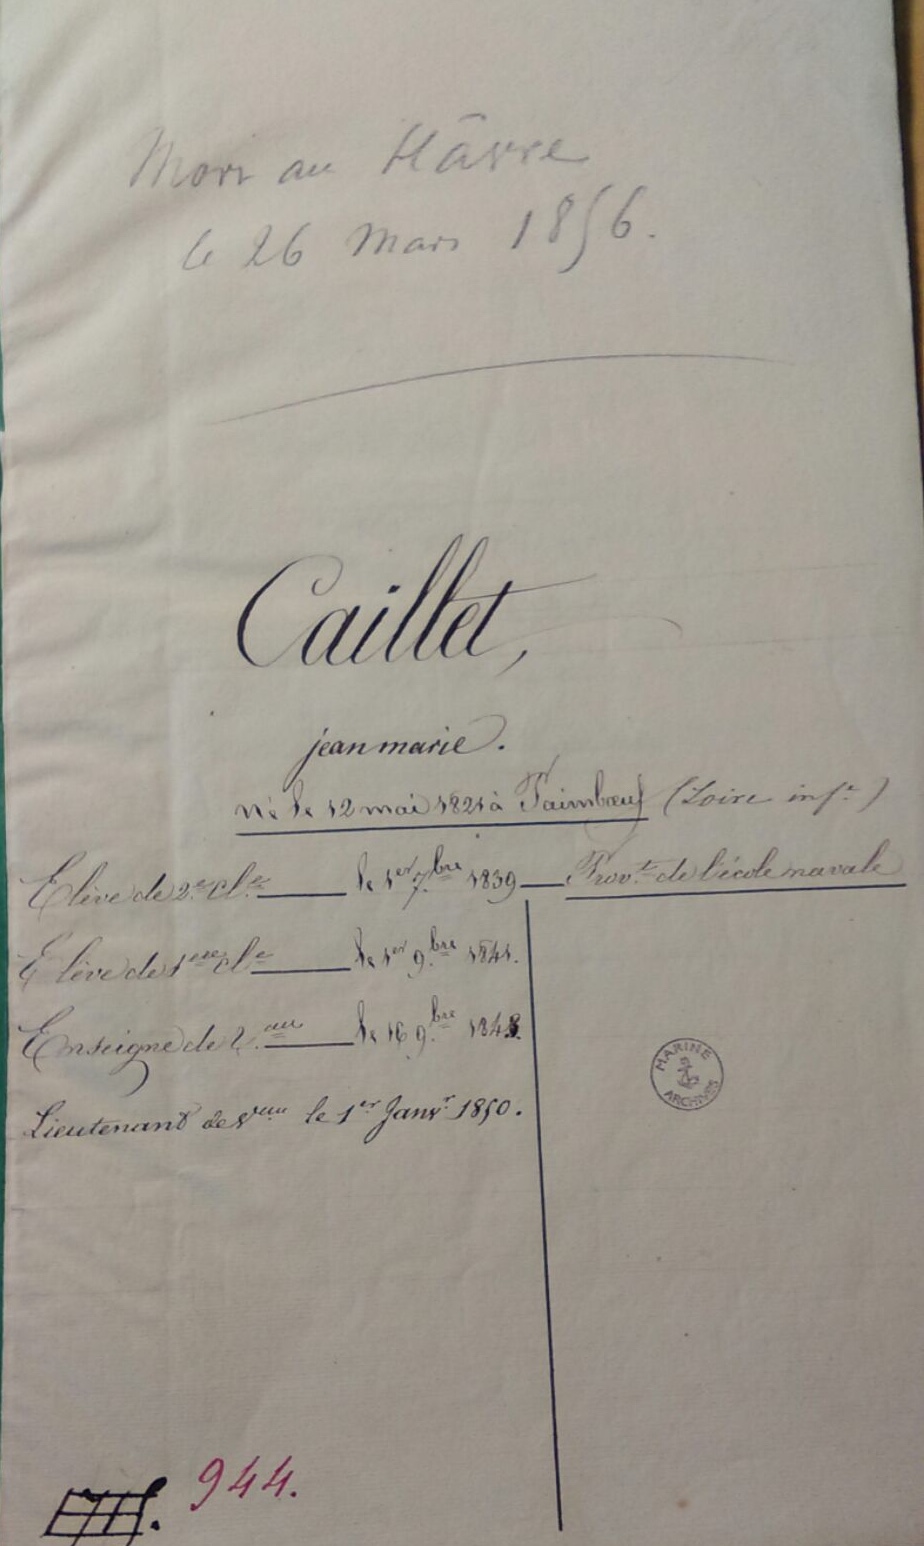 Mort au Hâvre
le 26 Mars 1856.
Caillet,
jean marie.
né le 12 mai 1821 à Paimbœuf (Loire infre)
Elève de 2e cle le 1er 7bre 1839 Provt de l'école navale
Elève de 1ere cle le 1er 9bre 1841.
Enseigne de Vau le 16 9bre 1843.
MARINE
ARCHIVES
Lieutenant de Veau le 1er Janvr 1850.
944.